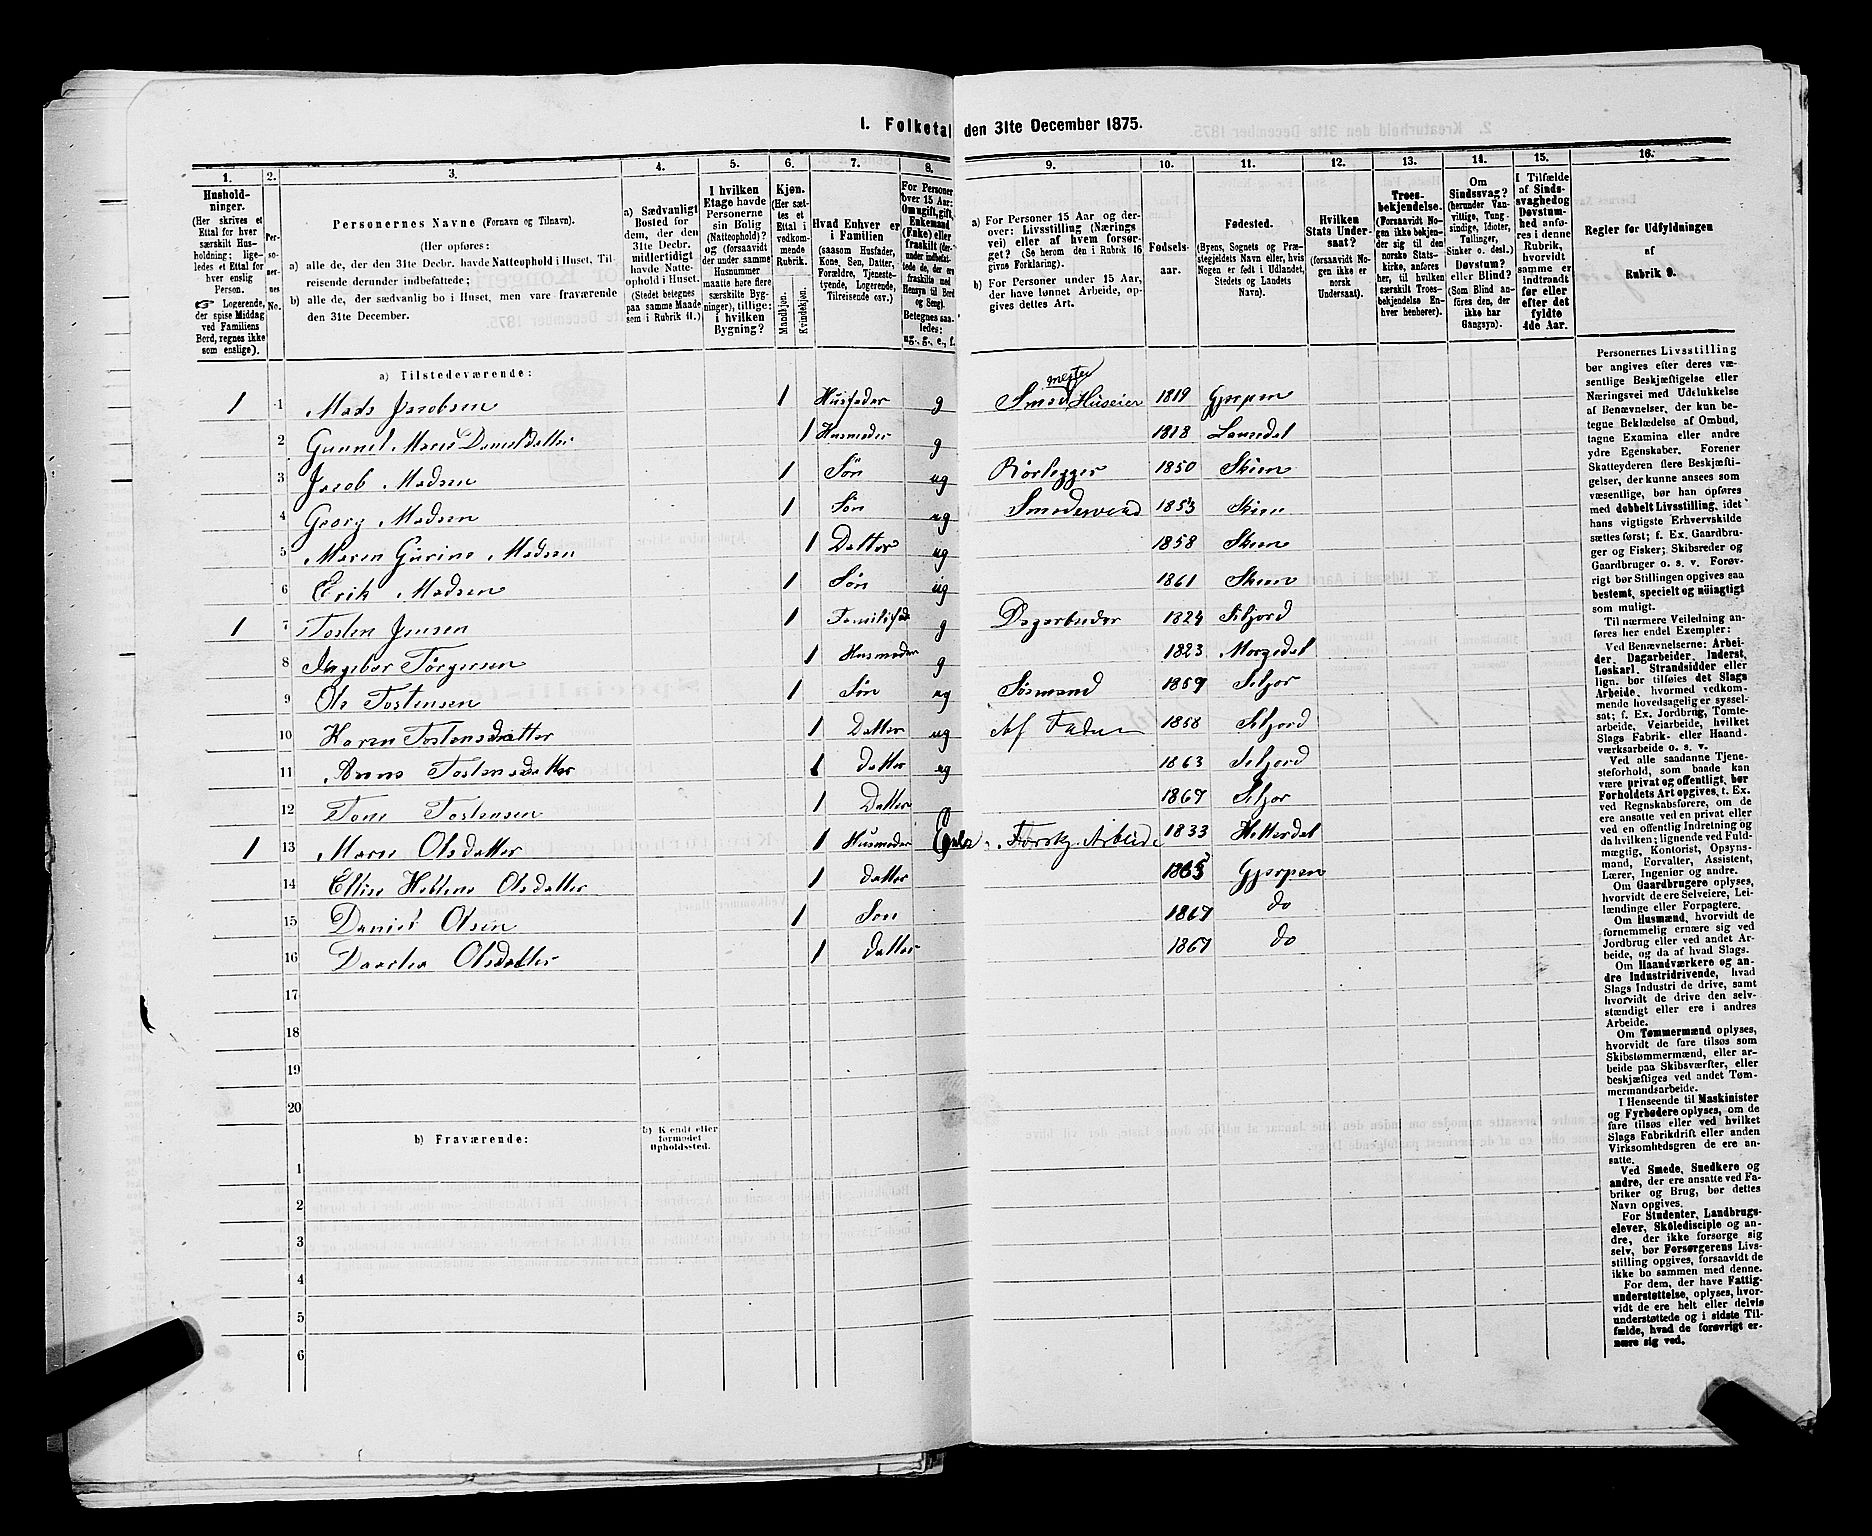 1. Folketal den 31te December 1875.
1. 2. 3. 4. 5. 6. 7. 8. 9. 10. 11. 12. 13. 14. 15. 16.
Hushold-
ninger.
(Her skrives et
Ettal for hver
særskilt Hus-
holdning; lige-
ledes et Ettal for
hver enslig
Person.
☞ Logerende,
der spise Middag
ved Familiens
Bord, regnes ikke
som enslige).
Per-
so-
ner-
nes
No.
Personernes Navne (Fornavn og Tilnavn).
(Her opføres:
a) alle de, der den 31te Decbr. havde Natteophold i Huset, Til-
reisende derunder indbefattede;
b) alle de, der sædvanlig bo i Huset, men vare fraværende
den 31te December.
a) Sædvanligt
Bosted for
dem, der den
31te Decbr.
midlertidigt
havde Natte-
ophold i Huset.
(Stedet betegnes
paa samme Maade
som i Rubrik 11.)
I hvilken
Etage havde
Personerne
sin Bolig
(Natteophold)?
og (forsaavidt
der under samme
Husnummer
maatte høre flere
særskilte Byg-
ninger), tillige:
i hvilken
Bygning?
Kjøn.
(Her sæt-
tes et
Ettal i
vedkom-
mende
Rubrik.
Mandkjøn.
Kvindekjøn.
Hvad Enhver er
i Familien
(saasom Husfader,
Kone, Søn, Datter,
Forældre, Tjeneste-
tyende, Logerende,
Tilreisende osv.)
For Personer
over 15 Aar:
Om ugift, gift,
Enkemand
(Enke) eller
fraskilt (der-
under indbefat-
tede de, der ere
fraskilte med
Hensyn til Bord
og Seng).
Betegnes saa-
ledes:
ug., g., e., f.
a) For Personer 15 Aar og der-
over: Livsstilling (Nærings
vei) eller af hvem forsør-
get? (Se herom den i Rubrik 16
givne Forklaring).
b) For Personer under 15 Aar,
der have lønnet Arbeide, op-
gives dettes Art.
Fødsels-
aar.
Fødested.
(Byens, Sognets og Præ-
stegjeldets Navn eller, hvis
Nogen er født i Udlandet,
Stedets og Landets
Navn).
Hvilken
Stats Under-
saat?
(forsaavidt No-
gen ikke er
norsk
Undersaat).
Troes-
bekjendelse.
(Forsaavidt No-
gen ikke bekjen-
der sig til den
norske Stats-
kirke, anføres
her, til hvilken
særskilt Troes-
bekjendelse En-
hver henhører).
Om
Sindssvag?
(herunder Van-
vittige, Tung-
sindige, Idioter,
Tullinger,
Sinker o. desl.)
Døvstum?
eller Blind?
(Som Blind an-
føres den, der
ikke har
Gangsyn).
I Tilfælde
af Sinds-
svaghed og
Døvstum-
hed anfø-
res i denne
Rubrik,
hvorvidt
samme er
indtraadt
før eller
efter det
fyldte
4de Aar.
Regler for Udfyldningen
af
Rubrik 9.
a) Tilstedeværende:
1 1 Mads Jacobsen 1 Husfader g Smedmester Huseier 1819 Gjerpen
2 Gunnel Marie Danieldatter 1 Husmoder g 1818 Laurdal
3 Jacob Madsen 1 Søn ug Rørlegger 1850 Skien
4 Georg Madsen 1 Søn ug Smedesvend 1853 Skien
5 Maren Gurine Madsen 1 Datter ug 1858 Skien
6 Erik Madsen 1 Søn ug 1861 Skien
1 7 Tosten Jensen 1 Familiefader g Dagarbeider 1824 Siljord
8 Ingebor Torgersen 1 Husmoder g 1823 Morgedal
9 Ole Tostensen 1 Søn ug Sømand 1859 Siljor
10 Karen Tostensdatter 1 Datter ug Af Fader 1858 Siljord
11 Anne Tostensdatter 1 datter ug 1863 Siljord
12 Tone Tostensen 1 Datter 1867 Siljor
1 13 Maren Olsdatter 1 Husmoder Enke Forskj. Arbeide 1833 Hitterdal
14 Elise Helene Olsdatter 1 datter 1865 Gjerpen
15 Daniel Olsen 1 Søn 1867 do
16 Dorthea Olsdatter 1 datter 1867 do
17
18
19
20
b) Fraværende:
b) Kjendt eller
formodet
Opholdssted.
1
2
3
4
5
6
Personernes Livsstilling
bør angives efter deres væ-
sentlige Beskjæftigelse eller
Næringsvei med Udelukkelse
af Benævnelser, der kun be-
tegne Beklædelse af Ombud,
tagne Examina eller andre
ydre Egenskaber. Forener
Skatteyderen flere Beskjæfti-
gelser, der kunne ansees som
væsentlige, bør han opføres
med dobbelt Livsstilling, idet
hans vigtigste Erhvervskilde
sættes først; f. Ex. Gaardbru-
ger og Fisker; Skibsreder og
Gaardbruger o. s. v. Forøv-
rigt bør Stillingen opgives saa
bestemt, specielt og nøiagtigt
som muligt.
Til nærmere Veiledning an-
føres her endel Exempler:
Ved Benævnelserne: Arbei-
der, Dagarbeider, Inderst,
Løskarl, Strandsidder eller
lign. bør tilføies det Slags
Arbeide, hvormed vedkom-
mende hovedsagelig er syssel-
sat; f. Ex. Jordbrug, Tomte-
arbeide, Veiarbeide, hvilket
Slags Fabrik- eller Haand-
værksarbeide o. s. v.
Ved alle saadanne Tjene-
steforhold, som baade kan
være privat og offentligt, bør
Forholdets Art opgives, t. Ex.
ved Regnskabsførere, om de
ere ansatte ved en privat eller
ved en offentlig Indretning og
da hvilken; lignende ved Fuld-
mægtig, Kontorist, Opsyns-
mand, Forvalter, Assistent,
Lærer, Ingeniør og andre.
Om Gaardbrugere oplyses,
hvorvidt de ere Selveiere, Lei-
lændinge eller Forpagtere.
Om Husmænd, hvorvidt de
fornemmelig ernære sig ved
Jordbrug eller ved andet Ar-
beide, og da af hvad Slags.
Om Haandværkere og an-
dre Industridrivende, hvad
Slags Industri de drive, samt
hvorvidt de drive den selv-
stændigt eller ere i andres
Arbeide.
Om Tømmermænd oplyses,
hvorvidt de fare tilsøs som
Skibstømmermænd, eller ar-
beide paa Skibsværfter, eller
beskjæftiges ved andet Tøm-
mermandsarbeide.
I Henseende til Maskinister
og Fyrbødere oplyses, om de
fare tilsøs eller ved hvilket
Slags Fabrikdrift eller anden
Virksomhedsgren de ere an-
satte.
Ved Smede, Snedkere og
andre, der ere ansatte ved Fa-
briker og Brug, bør dettes
Navn opgives.
For Studenter, Landbrugs-
elever, Skoledisciple og an-
dre, der ikke forsørge sig
selv, bør Forsørgerens Livs-
stilling opgives, forsaavidt de
ikke bo sammen med denne.
For dem, der have Fattig-
understøttelse, oplyses, hvor-
vidt de ere helt eller delvis
understøttede og i sidste Til-
fælde, hvad de forøvrigt er-
nære sig ved.